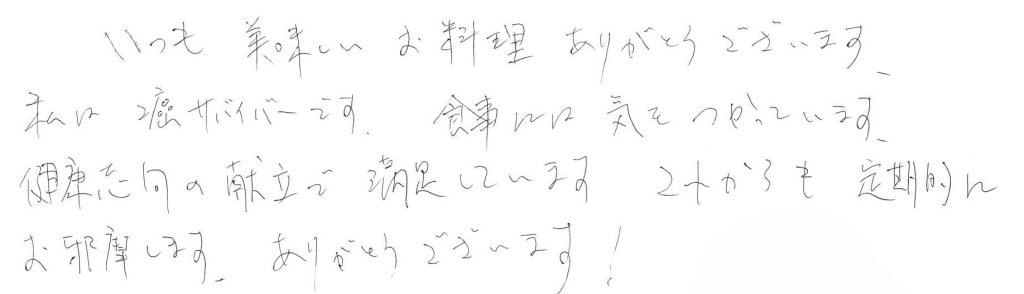 いつも 美味しい お料理 ありがとうございます。
私は 癌サバイバーです。 食事には 気をつかっています。
健康志向の献立で 満足しています これからも 定期的に
お邪魔します。 ありがとうございます！